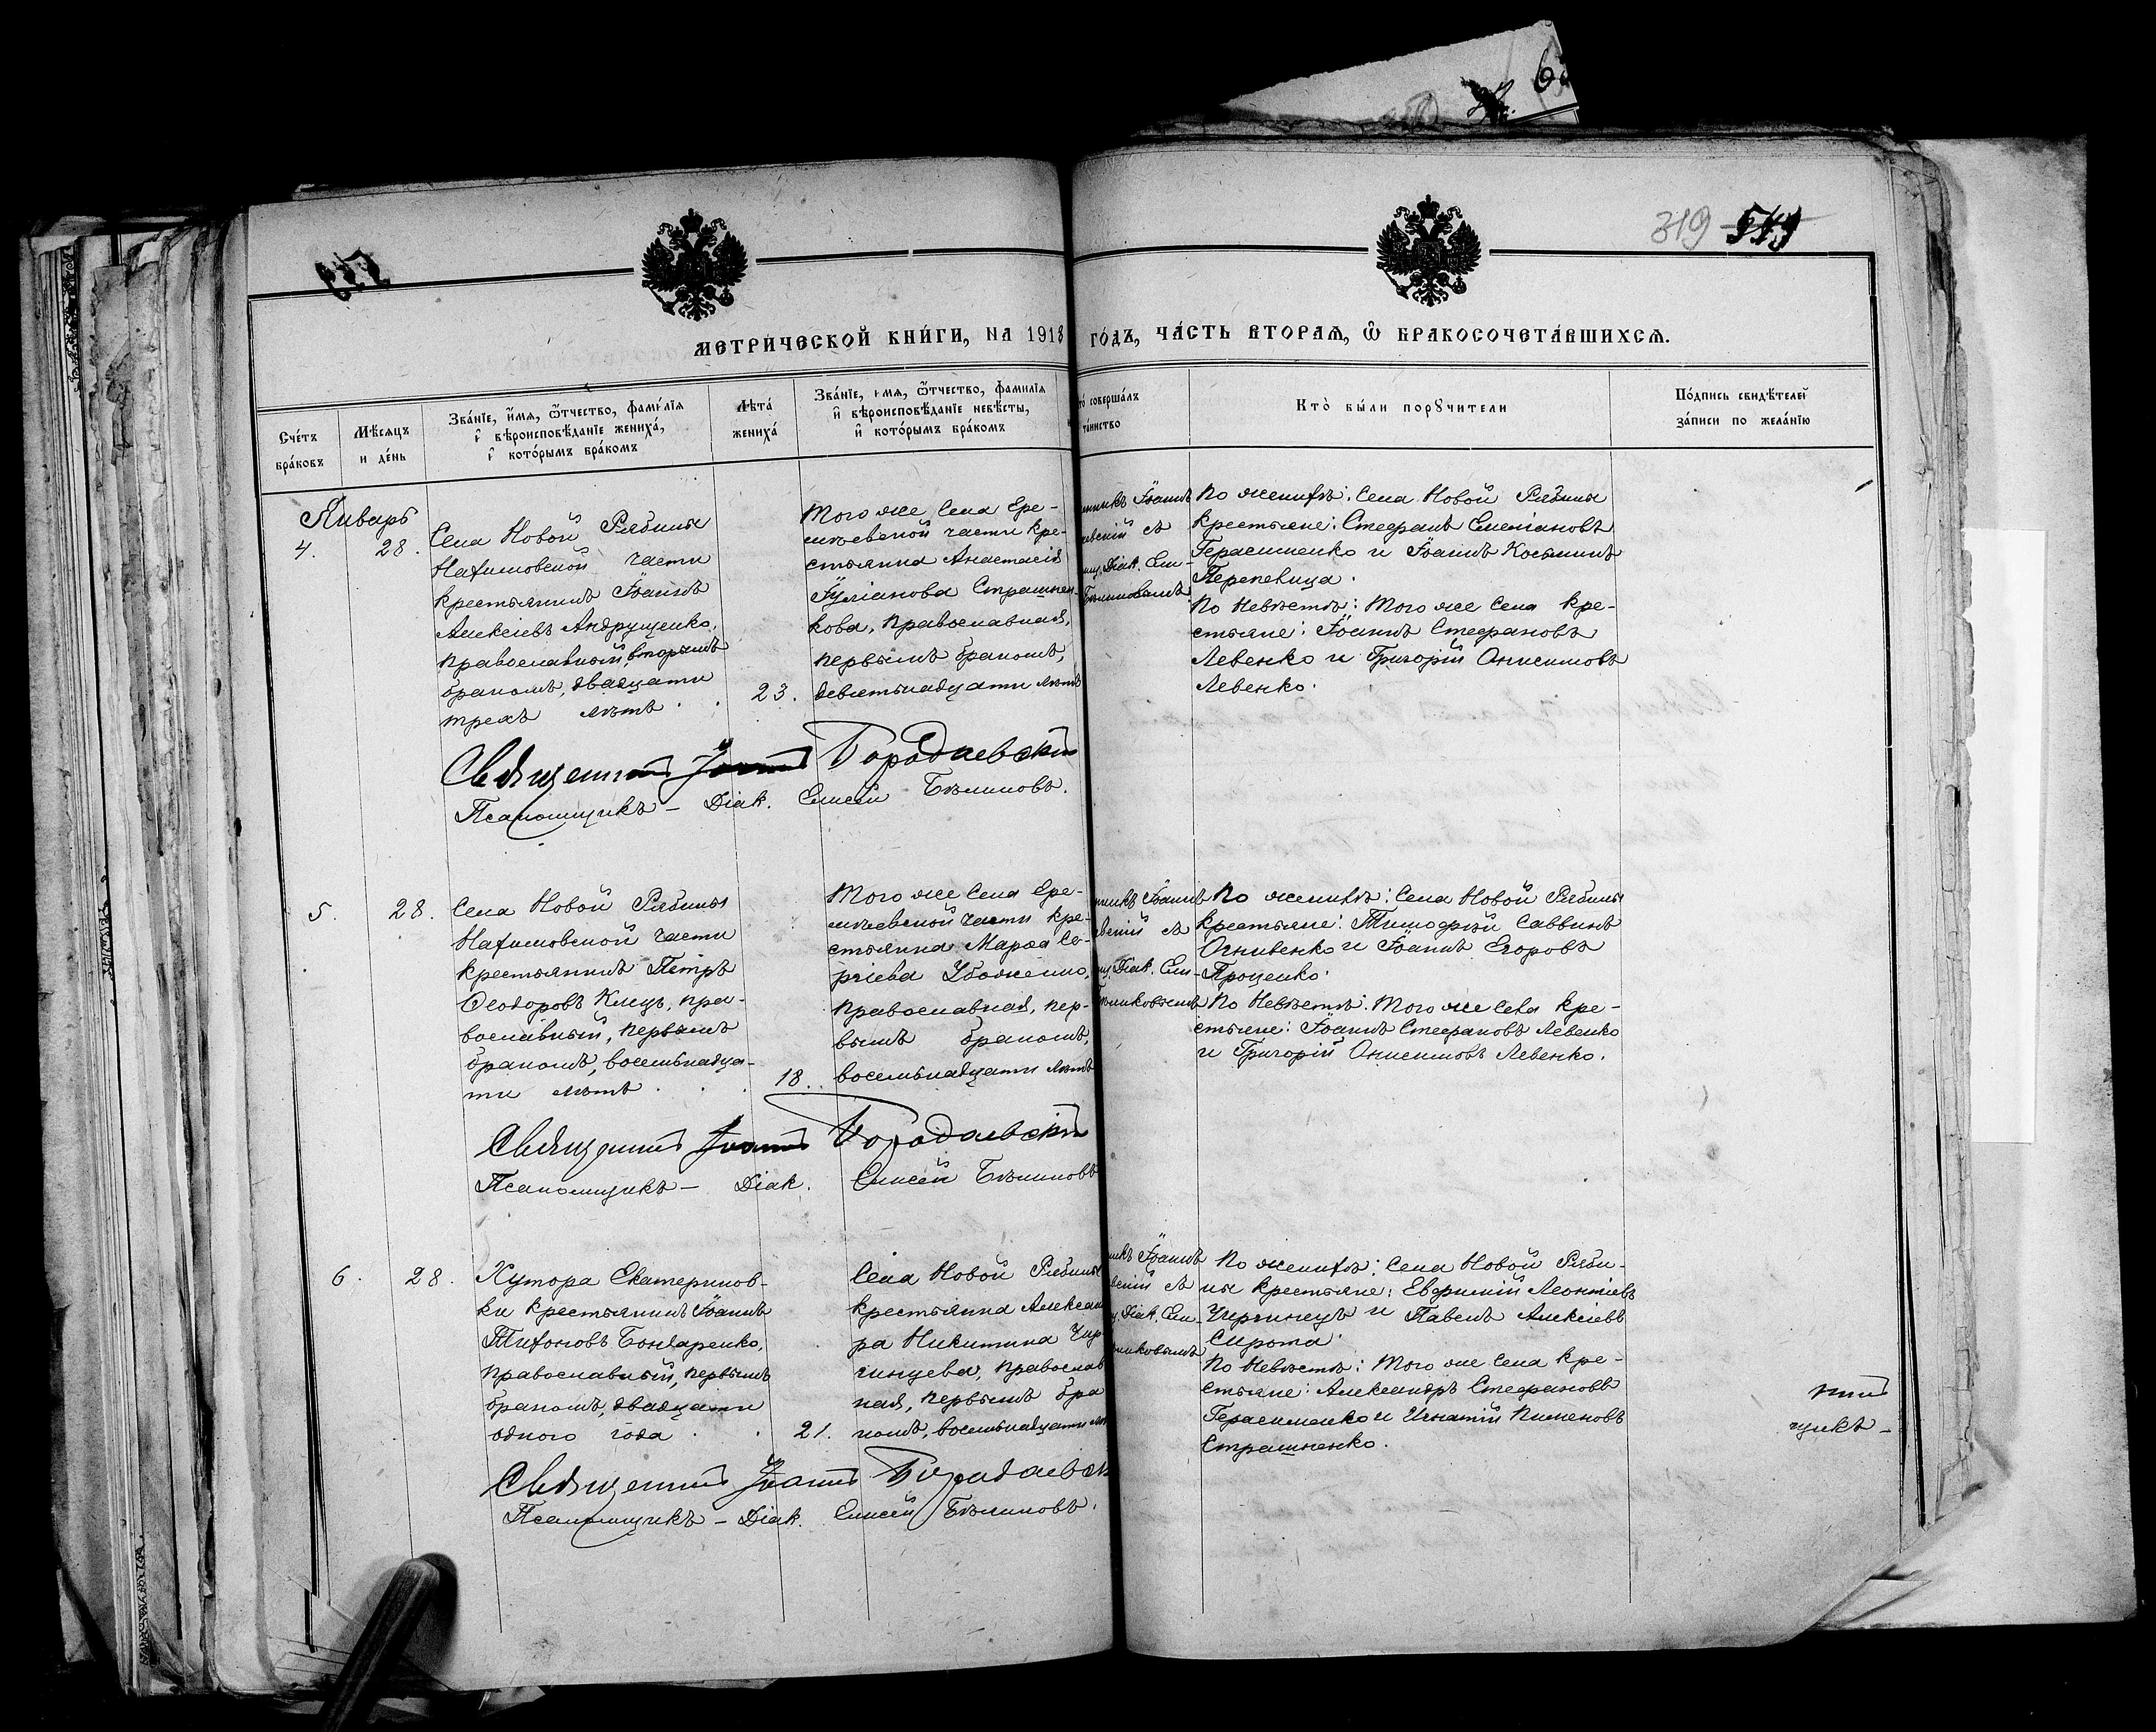 319
МЕТРИЧЕСКОЙ КНИ́ГИ, НА 1918 ГО́ДЪ, ЧА́СТЬ ВТОРАѦ, Ѽ БРАКОСОЧЕТА́ВШИХСѦ.
Сче́тъ бра́ковъ
Мѣсяцъ и де́нь
Зва́нїе, и҆́мя, ѻ҆́тчество, фами́лїя и҆ вѣроисповѣ́данїе жениха́, и҆ кото́рымъ бра́комъ
Лѣта́ жениха́
Зва́нїе, имя, ѻ҆́тчество, фамилїя и҆ вѣроисповѣ́данїе невѣ́сты, и҆ кото́рымъ бра́комъ
то̀ совершалъ та́инство
Кто̀ бы́ли порꙋчители
По́дпись свидѣтелей за́писи по жела́нїю
Январь
4.
28.
Села Новой Рябины
Нахимовской части
крестьянинъ Іоаннъ
Алексіевъ Андрущенко,
православный, вторымъ
бракомъ, двадцати
трехъ лѣтъ
23.
Того же Села Ере-
мѣевской части кре-
стьянка Анастасія
Іуліанова Страшнен-
кова, православная,
первымъ бракомъ,
девятнадцати лѣтъ
нникъ Іоаннъ
евскій съ
щ. Діак. Ели-
По женихѣ: Села Новой Рябины
крестьяне: Стефанъ Симеоновъ
Герасименко и Іоаннъ Косьминъ
Перепелица.
По невѣстѣ: того же Села кре-
стьяне: Іоаннъ Стефановъ
Левенко и Григорій Онисимовъ
Левенко.
Священникъ Іоаннъ Бородаевскій
Псаломщикъ – Діак. Елисей Бѣлиновъ.
5.
28.
Села Новой Рябины
Нахимовской части
крестьянинъ Петръ
Ѳеодоровъ Клецъ, пра-
вославный, первымъ
бракомъ, восемнадца-
ти лѣтъ
18.
Того же Села Ере-
мѣевской части кре-
стьянка Марѳа Се-
ргіева Убоженко,
православная, пер-
вымъ бракомъ,
восемнадцати лѣтъ
нникъ Іоаннъ
вскій съ
щ. Діак. Ели-
По женихѣ: Села Новой Рябины
крестьяне: Тимофей Саввинъ
Огнивенко и Іоаннъ Егоровъ
Проценко.
По невѣстѣ: того же села кре-
стьяне: Іоаннъ Стефановъ Левенко
и Григорій Онисимовъ Левенко.
Священникъ Іоаннъ Бородаевскій
Псаломщикъ – Діак. Елисей Бѣлиновъ
6.
28.
Хутора Екатеринов-
ки крестьянинъ Іоаннъ
Тихоновъ Бондаренко,
православный, первымъ
бракомъ, двадцати
одного года
21.
Села Новой Рябины
крестьянка Алексан
ра Никитина Чир-
чинцева, православ
ная, первымъ бра
комъ, восемнадцати лѣ
никъ Іоаннъ
вскій съ
щ. Діак. Ели-
По женихѣ: Села Новой Ряби-
ны крестьяне: Евфимій Леонтіевъ
Чирчинецъ и Павелъ Алексіевъ
Сирота.
По невѣстѣ: того же села кре-
стьяне: Александръ Стефановъ
Герасименко и Игнатій Пименовъ
Страшненко.
Священникъ Іоаннъ Бородаевск
Псаломщикъ – Діак. Елисей Бѣлиновъ.
щикъ –